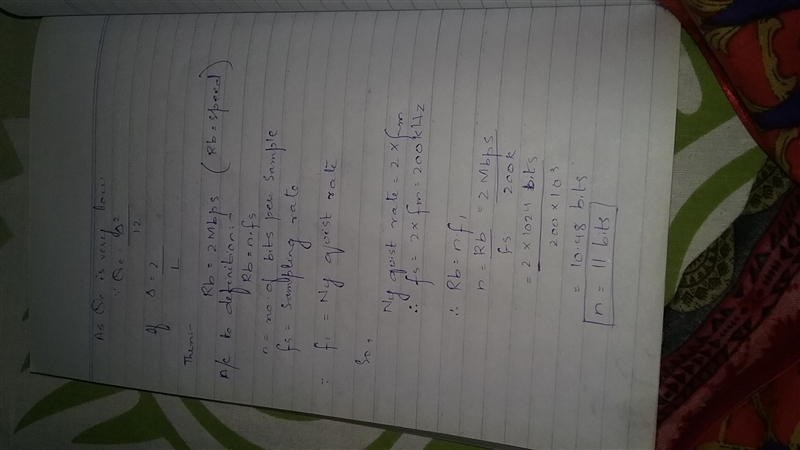 As Qe is very low
∵ Qe = Δ²
12
If Δ = 2
L
Then:-
Rb = 2Mbps (Rb = speed)
A/c to definition:-
Rb = n.fs
n = no. of bits per sample
fs = sampling rate
∵ f1 = Ny quist rate
So,
Ny quist rate = 2 x fm
∴ fs = 2 x fm = 200kHz
∴ Rb = n.f1
n = Rb = 2 Mbps
fs 200k
= 2 x 1024 bits
200 x 10³
= 10.48 bits
n = 11 bits